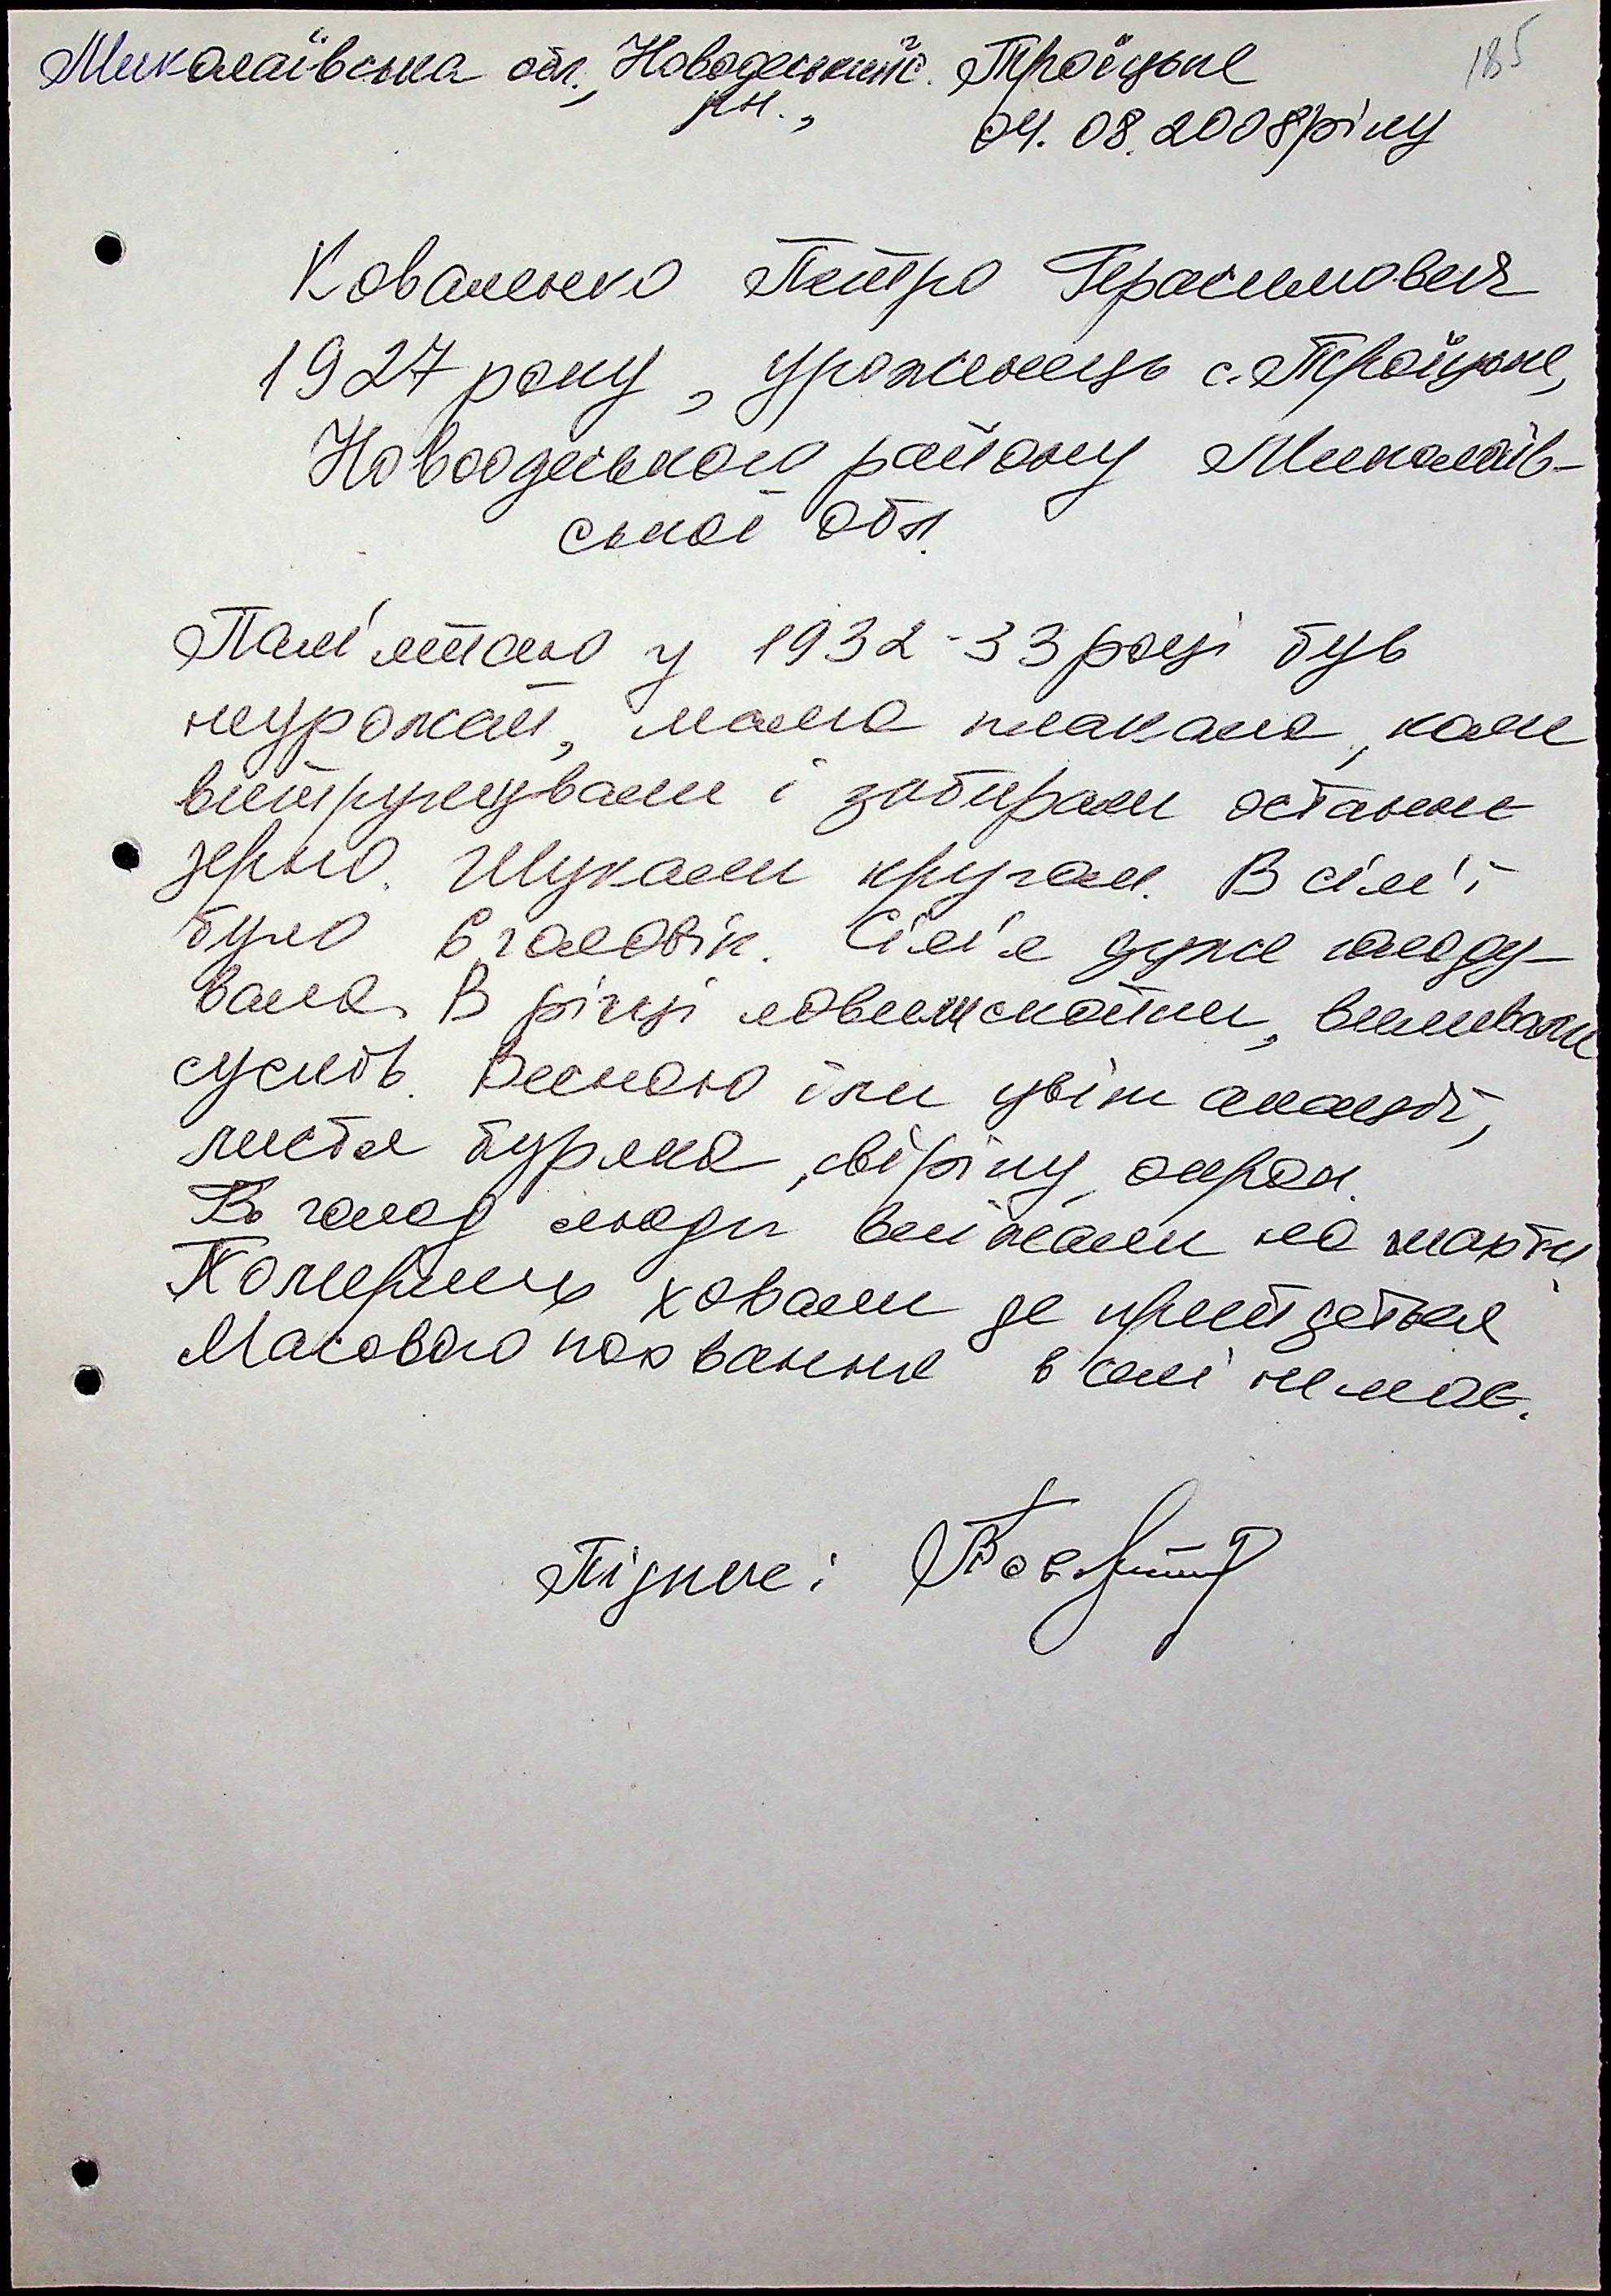 185
Миколаївська обл., Новодеський с. Троїцьке
рн.,
04. 08. 2008 ріку
Коваленко Петро Герасимович
1927 року, уроженець с. Троїцьке,
Новоодеського району Миколаїв-
ської обл.
Пам'ятаю у 1932-33 році був
неурожай, мама плакала, коли
витрушували і забирали останнє
зерно. Шукали кругом. В сім'ї
було 6 чоловік. Сім'я дуже голоду-
вала. В річці ловили скойки, виливали
сусліків. Весною їли цвіт акації,
листя буряка, свіріпу, курай.
В голод люди виїжали на шахти
Померших ховали де прийдеться
Масового поховання в селі немає.
Підпис: